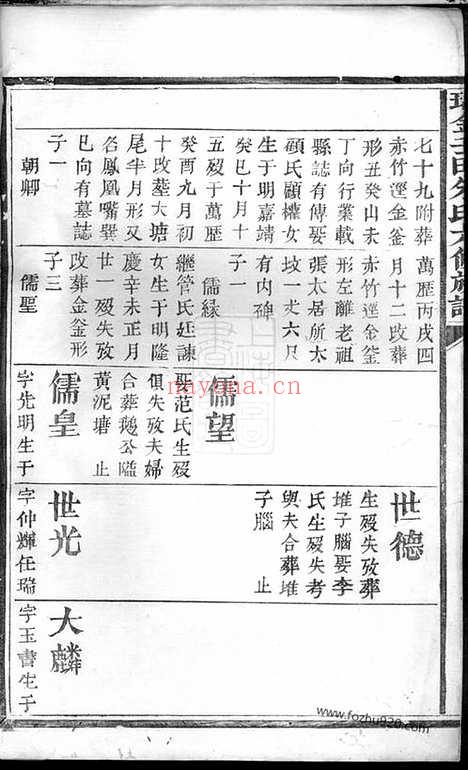 七十九附葬
赤竹溼金釜
形丑癸山未
丁向行業載
縣誌有傳娶
顧氏顧權女
生于明嘉靖
癸巳十月十
五殁于萬歷
癸酉九月初
十改葬大塘
尾半月形又
名鳳凰嘴巽
巳向有墓誌
子一
朝卿
萬歷丙戌四
月十二改葬
赤竹溼金釜
形左離老祖
張太居所太
坟一丈六尺
有内碑
子一
儒緣
繼管氏廷諫
女生于明隆
慶辛未正月
廿一殁失攷
改葬金釜形
子三
儒聖
儒望
娶范氏生殁
俱失攷夫婦
合葬鵝公嶝
黃泥塘 止
儒皇
字先明生于
世德
生殁失攷葬
堆子腦娶李
氏生殁失考
與夫合葬堆
子腦 止
世光
字仲輝任瑞
大麟
字玉書生于
nayona.cn
www.fozhu920.com